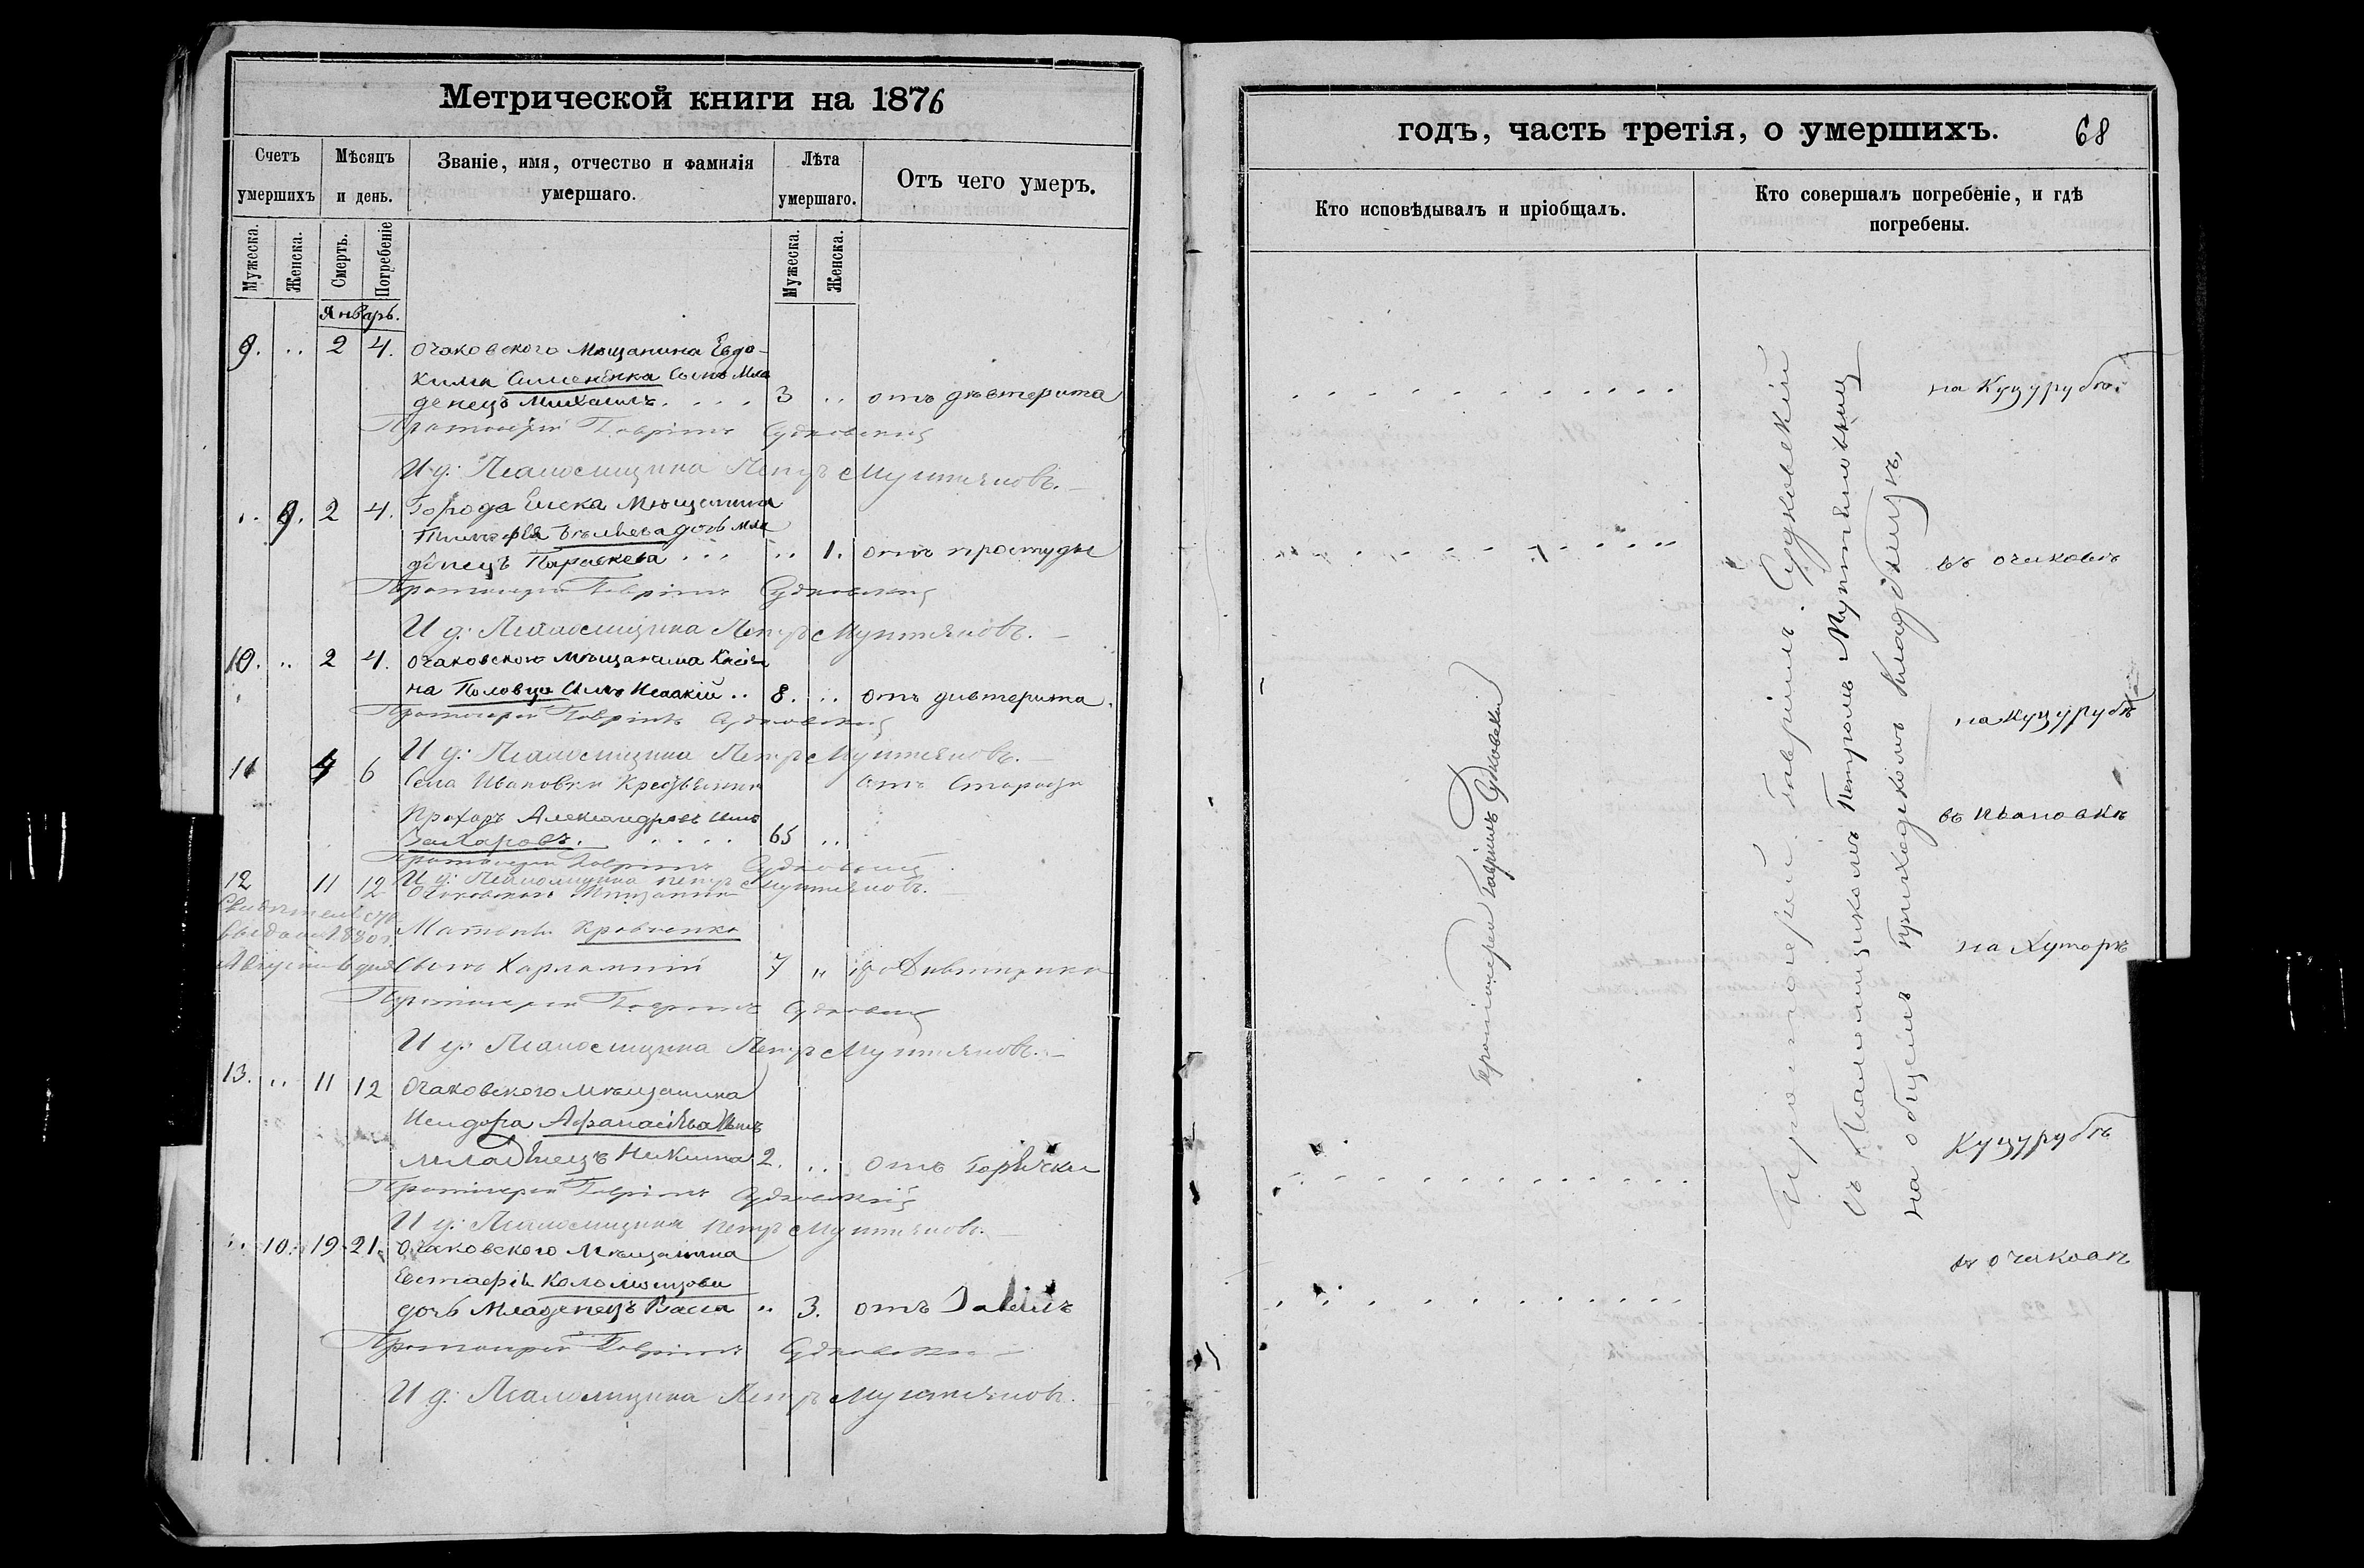 Метрической книги на 1876
Счетъ умершихъ
Мѣсяцъ и день.
Званіе, имя, отчество и фамилія умершаго.
Лѣта умершаго.
Отъ чего умеръ.
Мужеска.
Женска.
Смерть.
Погребеніе
Мужеска.
Женска.
Январь.
9. .. 2 4. Очаковского мѣщанина Евдо-
кима Симененка сынъ мла
денецъ Михаилъ 3 .. отъ дивтерита
Протоіерей Гавріилъ Судковскій
И д: Псаломщика Петръ Мунтяновъ.
.. 9. 2 4. Города Ейска мѣщанина
Тимофея Бѣляева дочь мла
денецъ Параскева .. 1. отъ простуды
Протоіерей Гавріилъ Судковскій
И д: Псаломщика Петръ Мунтяновъ.
10. .. 2 4. Очаковского мѣщанина Касія
на Половца сынъ Исаакій .. 8. .. отъ дивтерита.
Протоіерей Гавріилъ Судковскій
И д: Псаломщика Петръ Мунтяновъ.
11 4 6 Села Ивановки Крестьянинъ отъ старости
Прохоръ Александровъ сынъ
Захаровъ. 65 ..
Протоіерей Гавріилъ Судковскій
И д: Псаломщика Петръ Мунтяновъ.
12 11 12 Очаковскаго мѣщанина
Матвѣя Кравченка
сынъ Харлампій 7 „
Протоіерей Гавріилъ Судковскій
И д: Псаломщика Петръ Мунтяновъ.
13. .. 11 12 Очаковского мѣщанина
Исидора Афанасьева сынъ
младенецъ Никита 2. .. отъ горячки
Протоіерей Гавріилъ Судковскій
И д: Псаломщика Петръ Мунтяновъ.
.. 10. 19 21. Очаковского мѣщанина
Евстафія Коломійцова
дочь младенецъ Васса .. 3. отъ
Протоіерей Гавріилъ Судковскій
И д: Псаломщика Петръ Мунтяновъ.
годъ, часть третія, о умершихъ. 68
Кто исповѣдывалъ и пріобщалъ.
Кто совершалъ погребеніе, и гдѣ погребены.
Протоіерей Гавріилъ Судковскій
Протоіерей Гавріилъ Судковскій
съ Псаломщикомъ Петромъ Мунтяновымъ
на общемъ приходскомъ кладбищѣ,
на Куцурубѣ
въ Очаковѣ
на Куцурубѣ
въ Ивановкѣ
на Хуторѣ
Куцурубѣ
въ Очаковѣ